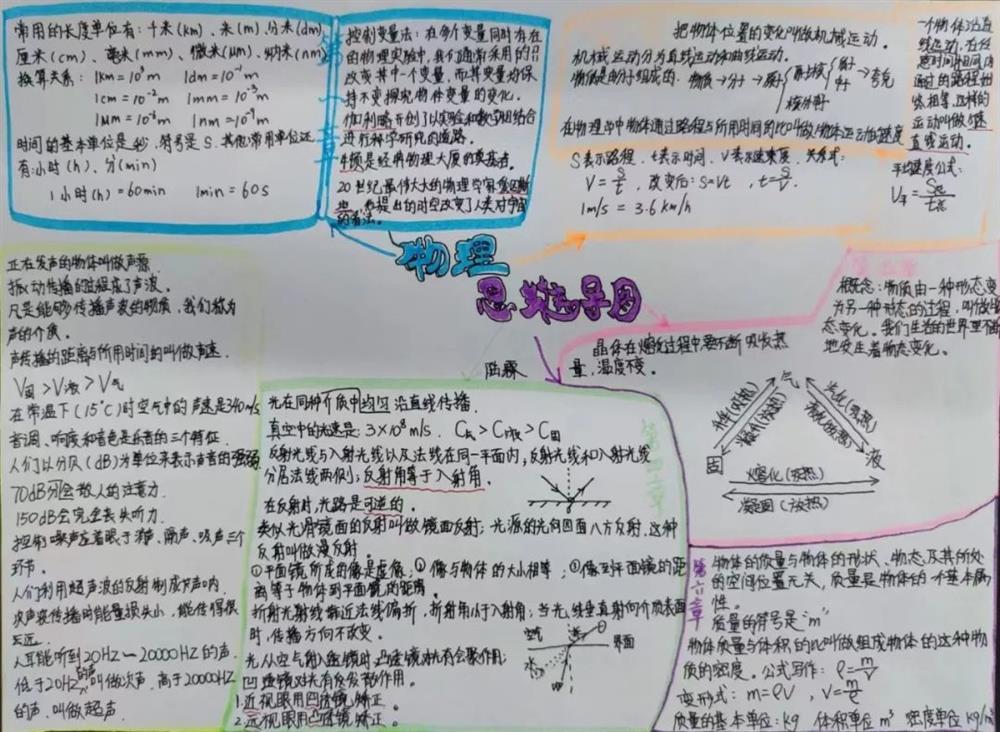 物理
思维导图
陆霖
常用的长度单位有：千米(km)、米(m)、分米(dm)
厘米(cm)、毫米(mm)、微米(μm)、纳米(nm)
换算关系：1km=10³m 1dm=10⁻¹m
1cm=10⁻²m 1mm=10⁻³m
时间的基本单位是秒，符号是S.其他常用单位还
有:小时(h)、分(min)
1小时(h)=60min 1min=60s
第一章
控制变量法：在多个变量同时存在
的物理实验中，我们通常采用的
改变其中一个变量，而其变量均保
持不变探究物体变量的变化。
伽利略开创了以实验和数学相结合
进行科学研究的道路。
牛顿是经典物理大厦的奠基者。
20世纪最伟大的物理学家
提出的时空改变了人类对宇宙
的看法。
把物体位置的变化叫做机械运动。
机械运动分为直线运动和曲线运动。
物质是由分子组成的：物质→分子→原子 原子核 质子 中子 →夸克
核外电子
在物理学中物体通过路程与所用时间的比叫做物体运动的速度
S表示路程，t表示时间，V表示速度，关系式：
V=S/t，改变后：S=Vt，t=S/V.
1m/s=3.6km/h
一个物体沿直
线运动，在任
意时间相同内
通过的路程始
终相等，这样的
运动叫做匀速
直线运动。
平均速度公式：
V平=S总/t总
正在发声的物体叫做声源
振动传播的过程成了声波。
凡是能够传播声波的物质，我们称为
声的介质。
声传播的距离与所用时间的叫做声速.
V固>V液>V气
在常温下(15℃)时空气中的声速是340m/s
音调、响度和音色是乐音的三个特征.
人们以分贝(dB)为单位来表示声音的强弱
70dB会分散人的注意力.
150dB会完全丧失听力.
控制噪声应着眼于消声、隔声、吸声三个
环节.
人们利用超声波的反射制成
次声波传播时能量损失小，能传得很
远.
人耳能听到20HZ～20000HZ的声.
低于20HZ的声叫做次声，高于20000HZ
的声.叫做超声.
光在同种介质中均匀沿直线传播.
真空中的光速是：3×10⁸m/s. C气>C液>C固
反射光线与入射光线以及法线在同一平面内，反射光线和入射光线
分居法线两侧；反射角等于入射角.
在反射时，光路是可逆的.
类似光滑镜面的反射叫做镜面反射；光源的光向四面八方反射，这种
反射叫做漫反射。
①平面镜所成的像是虚像；②像与物体的大小相等；③像到平面镜的距
离等于物体到平面镜的距离.
折射光射线靠近法线偏折，折射角小于入射角，当光线垂直射向介质表面
时，传播方向不改变.
空气
水
界面
光从空气射入透镜时，凸透镜对光有会聚作用；
凹透镜对光有发散作用。
1.近视眼用凹透镜矫正.
2.远视眼用凸透镜矫正.
第四章
概念：物质由一种形态变
为另一种形态的过程，叫做物
态变化。我们生活的世界里不断
地发生着物态变化。
晶体在熔化过程中要不断吸收热
量，温度不变。
气
固
液
熔化(吸热)
凝固(放热)
第六章
物体的质量与物体的形状、物态及其所处
的空间位置无关，质量是物体的一个基本属
性。
质量的符号是“m”
物体质量与体积的比叫做组成物体的这种物
质的密度。公式写作：ρ=m/V
变形式：m=ρV，V=m/ρ
质量的基本单位：kg 体积单位m³ 密度单位kg/m³